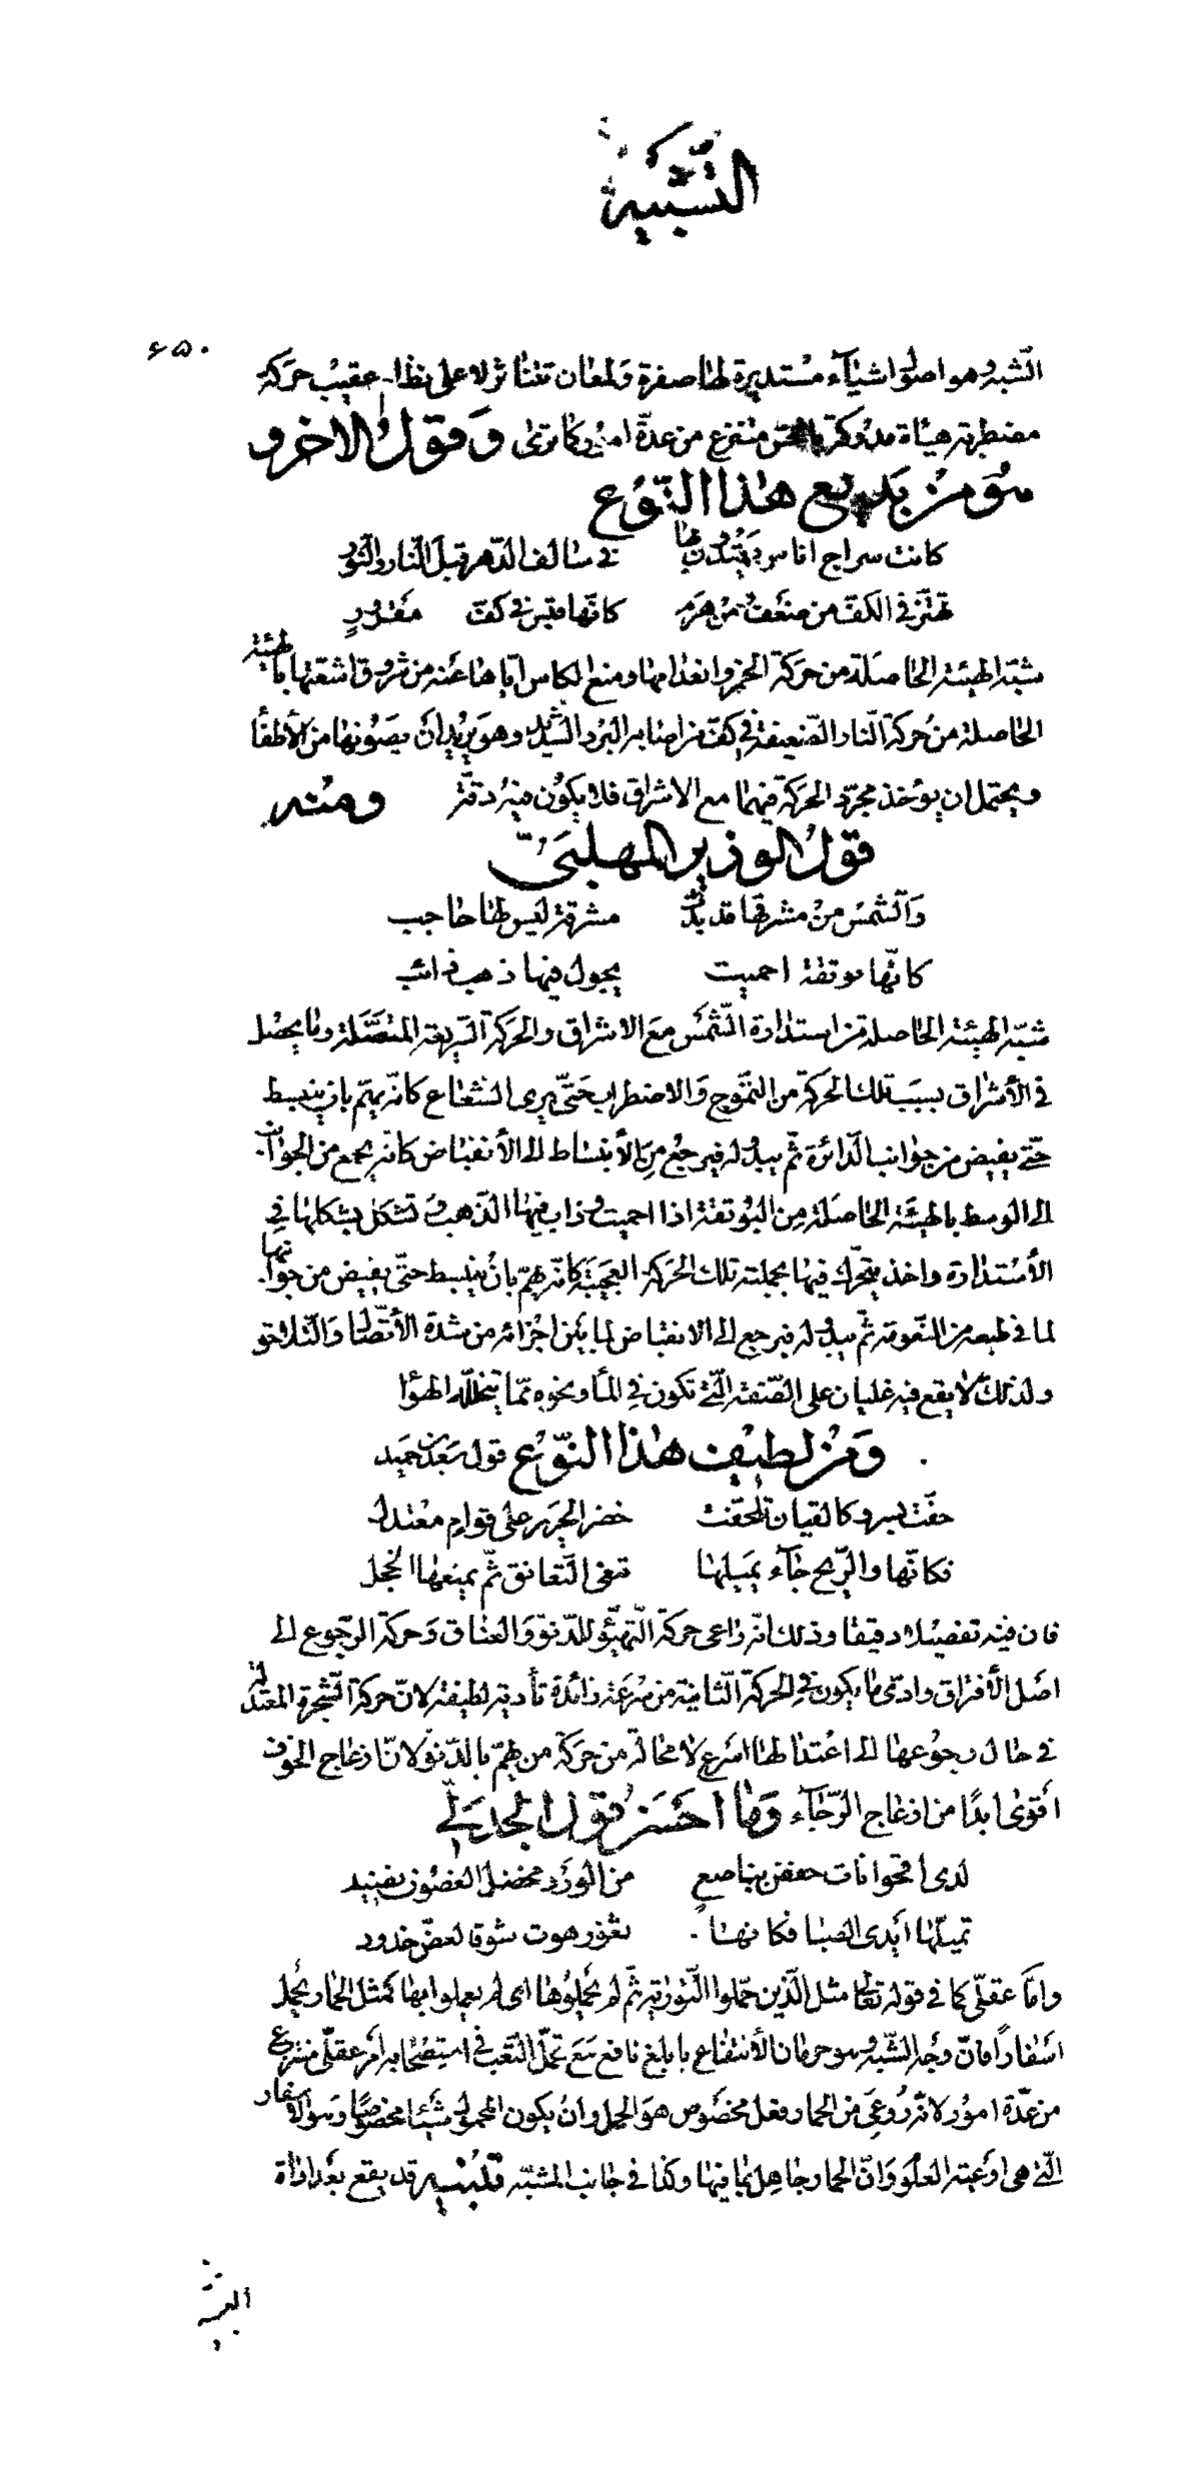 التشبيه
٦٥٠
الشبه وهو اصل اشيآء مستديرة لها صفرة ولمعان تتناثر لا على نظام عقيب حركة
مضطربة هيئاة مدركة بالحس منتزع من عدة امور كما ترى وقول الاخر و
هو من بديع هذا النوع
كانت سراج اناس يهتدون بها في سالف الدهر قبل النار والنور
تهتز في الكف من ضعف ومن هرم كانها قبس في كف مقرور
شبه الهيئة الحاصلة من حركة الخمر وانعدامها ومنع الكاس اياها عنه من شروق اشعتها بالهيئة
الحاصلة من حركة النار الضعيفة في كف من اصابه البرد الشديد وهو يريد ان يصونها من الأطفأ
ويحتمل ان يؤخذ مجرد الحركة فيهما مع الاشراق فلا يكون فيه دقة ومنه
قول الوزير المهلبي
والشمس من مشرقها قد بدت مشرقة ليس لها حاجب
كانها بوتقة احميت يجول فيها ذهب ذائب
شبه الهيئة الحاصلة من استدارة الشمس مع الاشراق والحركة السريعة المتصلة وما يحصل
في الأشراق بسبب تلك الحركة من التموج والاضطراب حتى يرى الشعاع كانه يهم بان ينبسط
حتى يفيض من جوانب الدائرة ثم يبدو له فيرجع من الأنبساط الى الأنقباض كانه يجمع من الجوانب
الى الوسط بالهيئة الحاصلة من البوتقة اذا احميت وذاب فيها الذهب وتشكل بشكلها في
الأستدارة واخذ يتحرك فيها بجملته تلك الحركة العجيبة كانه يهم بان ينبسط حتى يفيض من جوانبها
لما في طبعه من النعومة ثم يبدو له فيرجع الى الانقباض لما بين اجزائه من شدة الأتصال والتلاحق
ولذلك لا يقع فيه غليان على الصفة التي تكون في المأ ونحوه مما يتخلله الهوا
ومن لطيف هذا النوع قول سعد بن حميد
حفت بسرو كالقيان تلحفت خضر الحرير على قوام معتدل
فكانها والريح جآء يميلها تبغي التعانق ثم يمنعها الخجل
فان فيه تفصيلا دقيقا وذلك انه راعى حركة التهيئو للدنو والعناق وحركة الرجوع الى
اصل الأفتراق وادى ما يكون في الحركة الثانية من سرعة زائدة تأدية لطيفة لانّ حركة الشجرة المعتدلة
في حال رجوعها الى اعتدالها اسرع لا محالة من حركة من يهم بالدنو لانّ ازعاج الخوف
اقوى ابدًا من ازعاج الرجآء وما احسن قول الجديلي
لدى اقحوانات حففن بناصع من الورد مخضل الغصون نضيد
تميلها ايدى الصبا فكانها ثغور هوت شوقا لعض خدود
واما عقلي كما في قوله تعالى مثل الذين حملوا التورية ثم لم يحملوها اى لم يعملوا بها كمثل الحمار يحمل
اسفارًا فانّ وجه الشبه وهو حرمان الأنتفاع بابلغ نافع مع تحمل التعب في استصحابه امر عقلي منتزع
من عدة امور لانه روعى من الحمار فعل مخصوص هو الحمل وان يكون المحمول شيئا مخصوصا وهو الاسفار
التي هى اوعية العلوم وانّ الحمار جاهل بما فيها وكذا في جانب المشبه تنبيه قد يقع بعد اداة